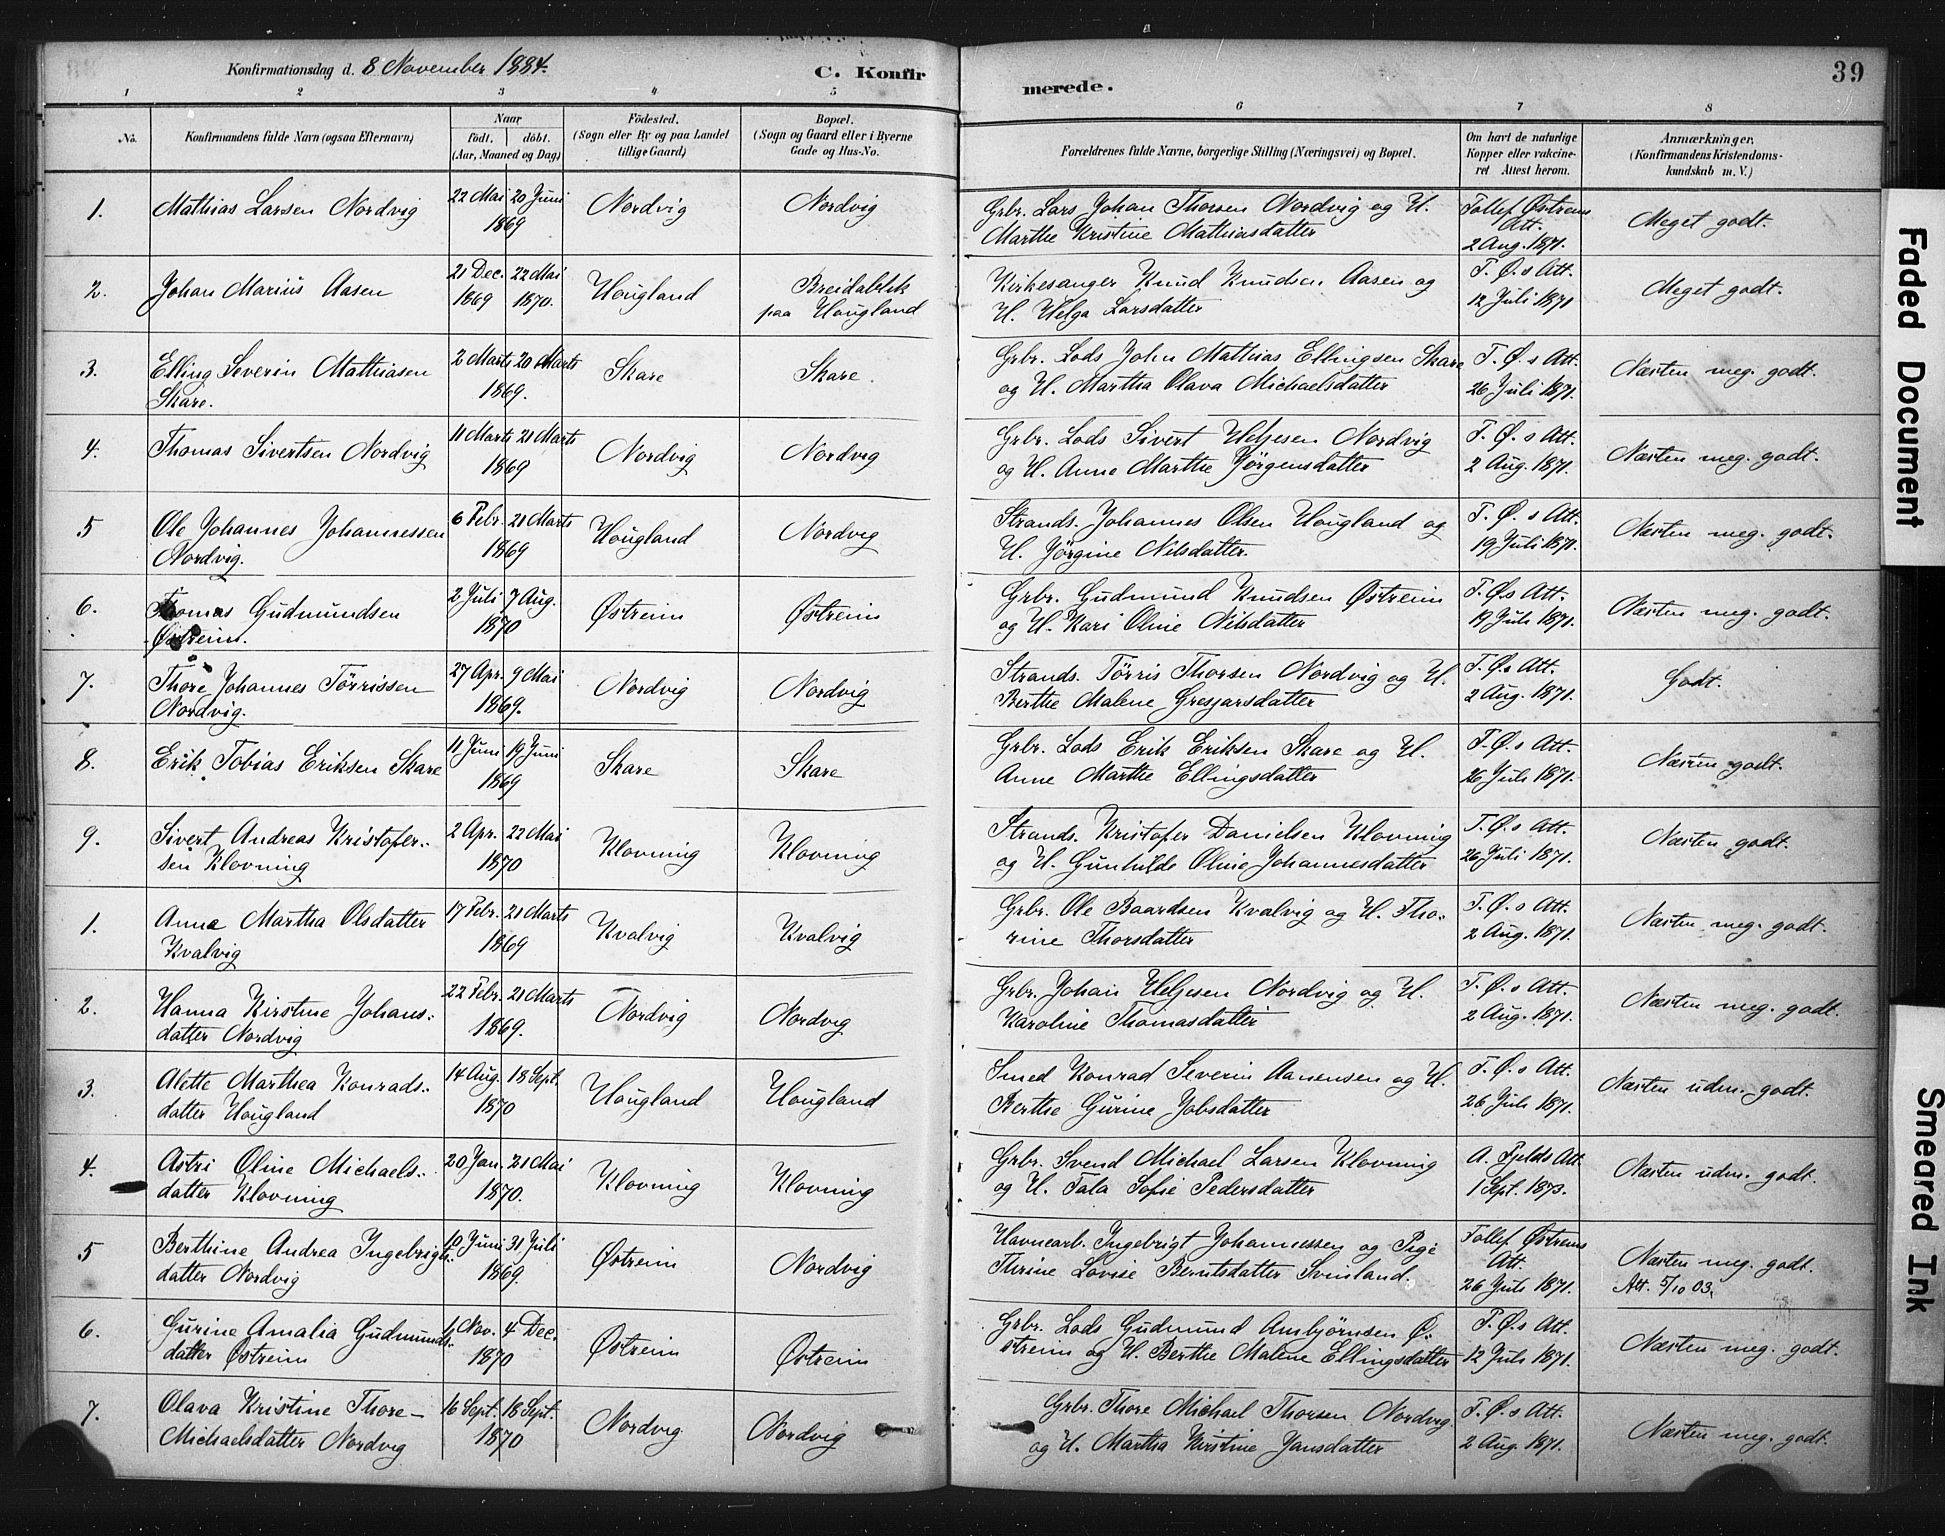 Konfirmationsdag d. 8 November 1884.
C. Konfirmerede.
39
1 2 3 4 5 6 7 8
No.
Konfirmandens fulde Navn (ogsaa Efternavn)
Naar
født. døbt.
(Aar, Maaned og Dag)
Födested.
(Sogn eller By og paa Landet
tillige Gaard)
Bopæl.
(Sogn og Gaard eller i Byerne
Gade og Hus-No.
Forældrenes fulde Navne, borgerlige Stilling (Næringsvei) og Bopæl.
Om havt de naturlige
Kopper eller vakcine-
ret Attest herom.
Anmærkninger.
(Konfirmandens Kristendoms-
kundskab m. V.)
1. Mathias Larsen Nordvig 22 Mai 20 Juni 1869 Nordvig Nordvig Grbr. Lars Johan Thorsen Nordvig og H.
Marthe Kristine Mathiasdatter Tollef Østrems Att. 2 Aug. 1871. Meget godt.
2. Johan Marius Aasen 21 Dec. 1869 22 Mai 1870. Hougland Breidablik
paa Hougland Kirkesanger Knud Knudsen Aasen og
H. Helga Larsdatter T. Ø.s Att. 12 Juli 1871 Meget godt.
3. Elling Severin Mathiasen
Skare. 2 Marts 20 Marts 1869. Skare Skare. Grbr. Lods John Mathias Ellingsen Skare
og H. Martha Olava Michaelsdatter T. Ø.s Att. 26 Juli 1871. Næsten meg. godt.
4. Thomas Sivertsen Nordvig 11 Marts 21 Marts 1869 Nordvig Nordvig Grbr. Lods Sivert Heljesen Nordvig
og H. Anne Marthe Jörgensdatter T. Ø.s Att. 2 Aug. 1871. Næsten meg. godt.
5 Ole Johannes Johannessen
Nordvig. 6 Febr. 21 Marts 1869 Hougland Nordvig Strands. Johannes Olsen Hougland og
H. Jörgine Nilsdatter. T. Ø.s Att. 19 Juli 1871. Næsten meg. godt.
6. Thomas Gudmundsen
Østreim. 2 Juli 7 Aug. 1870 Østreim Østreim Grbr. Gudmund Knudsen Østreim
og H. Kari Oline Nilsdatter T. Ø.s Att. 19 Juli 1871. Næsten meg. godt.
7. Thore Johannes Törrissen
Nordvig. 27 Apr. 9 Mai 1869. Nordvig Nordvig Strands. Törris Thorsen Nordvig og H.
Berthe Malene Gresjarsdatter T. Ø.s Att. 2 Aug. 1871. Godt.
8. Erik Tobias Eriksen Skare 11 Juni 19 Juni 1869 Skare Skare Grbr. Lods Erik Eriksen Skare og H.
Anne Marthe Ellingsdatter T. Ø.s Att. 26 Juli 1871. Næsten godt.
9. Sivert Andreas Kristofer-
sen Klovning 2 Apr. 22 Mai 1870 Klovning Klovning Strands. Kristofer Danielsen Klovning
og H. Gunhilde Oline Johannesdatter T. Ø.s Att. 26 Juli 1871. Næsten godt.
1. Anna Martha Olsdatter
Kvalvig 17 Febr. 21 Marts 1869 Kvalvig Kvalvig Grbr. Ole Baardsen Kvalvig og H. Tho-
rine Thorsdatter T. Ø.s Att. 2 Aug. 1871. Næsten meg. godt.
2. Hanna Kirstine Johans-
datter Nordvig 22 Febr. 21 Marts 1869. Nordvig Nordvig Grbr. Johan Heljesen Nordvig og H.
Karoline Thomasdatter T. Ø.s Att. 2 Aug. 1871. Næsten meg. godt.
3. Alette Marthea Konrads-
datter Hougland 14 Aug. 18 Sept. 1870 Hougland Hougland Smed Konrad Severin Aanensen og H.
Berthe Gurine Jobsdatter T. Ø.s Att. 26 Juli 1871. Næsten udm. godt.
4. Astri Oline Michaels-
datter Klovning 20 Jan. 21 Mai 1870. Klovning Klovning Grbr. Svend Michael Larsen Klovning
og H. Tala Sofie Pedersdatter A. Fjelds Att. 1 Sept. 1873. Næsten udm. godt.
5 Berthine Andrea Ingebrigts-
datter Nordvig 10 Juni 31 Juli 1869. Østreim Nordvig Havnearb. Ingebrigt Johannessen og Pige
Thrine Lovise Berntsdatter Svinland. Tollef Østrems Att. 26 Juli 1871. Næsten meg. godt.
Att. 5/10 03.
6. Gurine Amalia Gudmunds-
datter Østreim Nov. 4 Dec. 1870 Østreim Østreim Grbr. Lods Gudmund Asbjörnsen Ø-
streim og H. Berthe Malene Ellingsdatter T. Ø.s Att. 12 Juli 1871. Næsten meg. godt.
7. Olava Kristine Thore-
Michaelsdatter Nordvig 16 Sept. 18 Sept. 1870 Nordvig Nordvig Grbr. Thore Michael Thorsen Nordvig
og H. Martha Kristine Jansdatter T. Ø.s Att. 2 Aug. 1871. Næsten meg. godt.
Faded Document
Smeared Ink